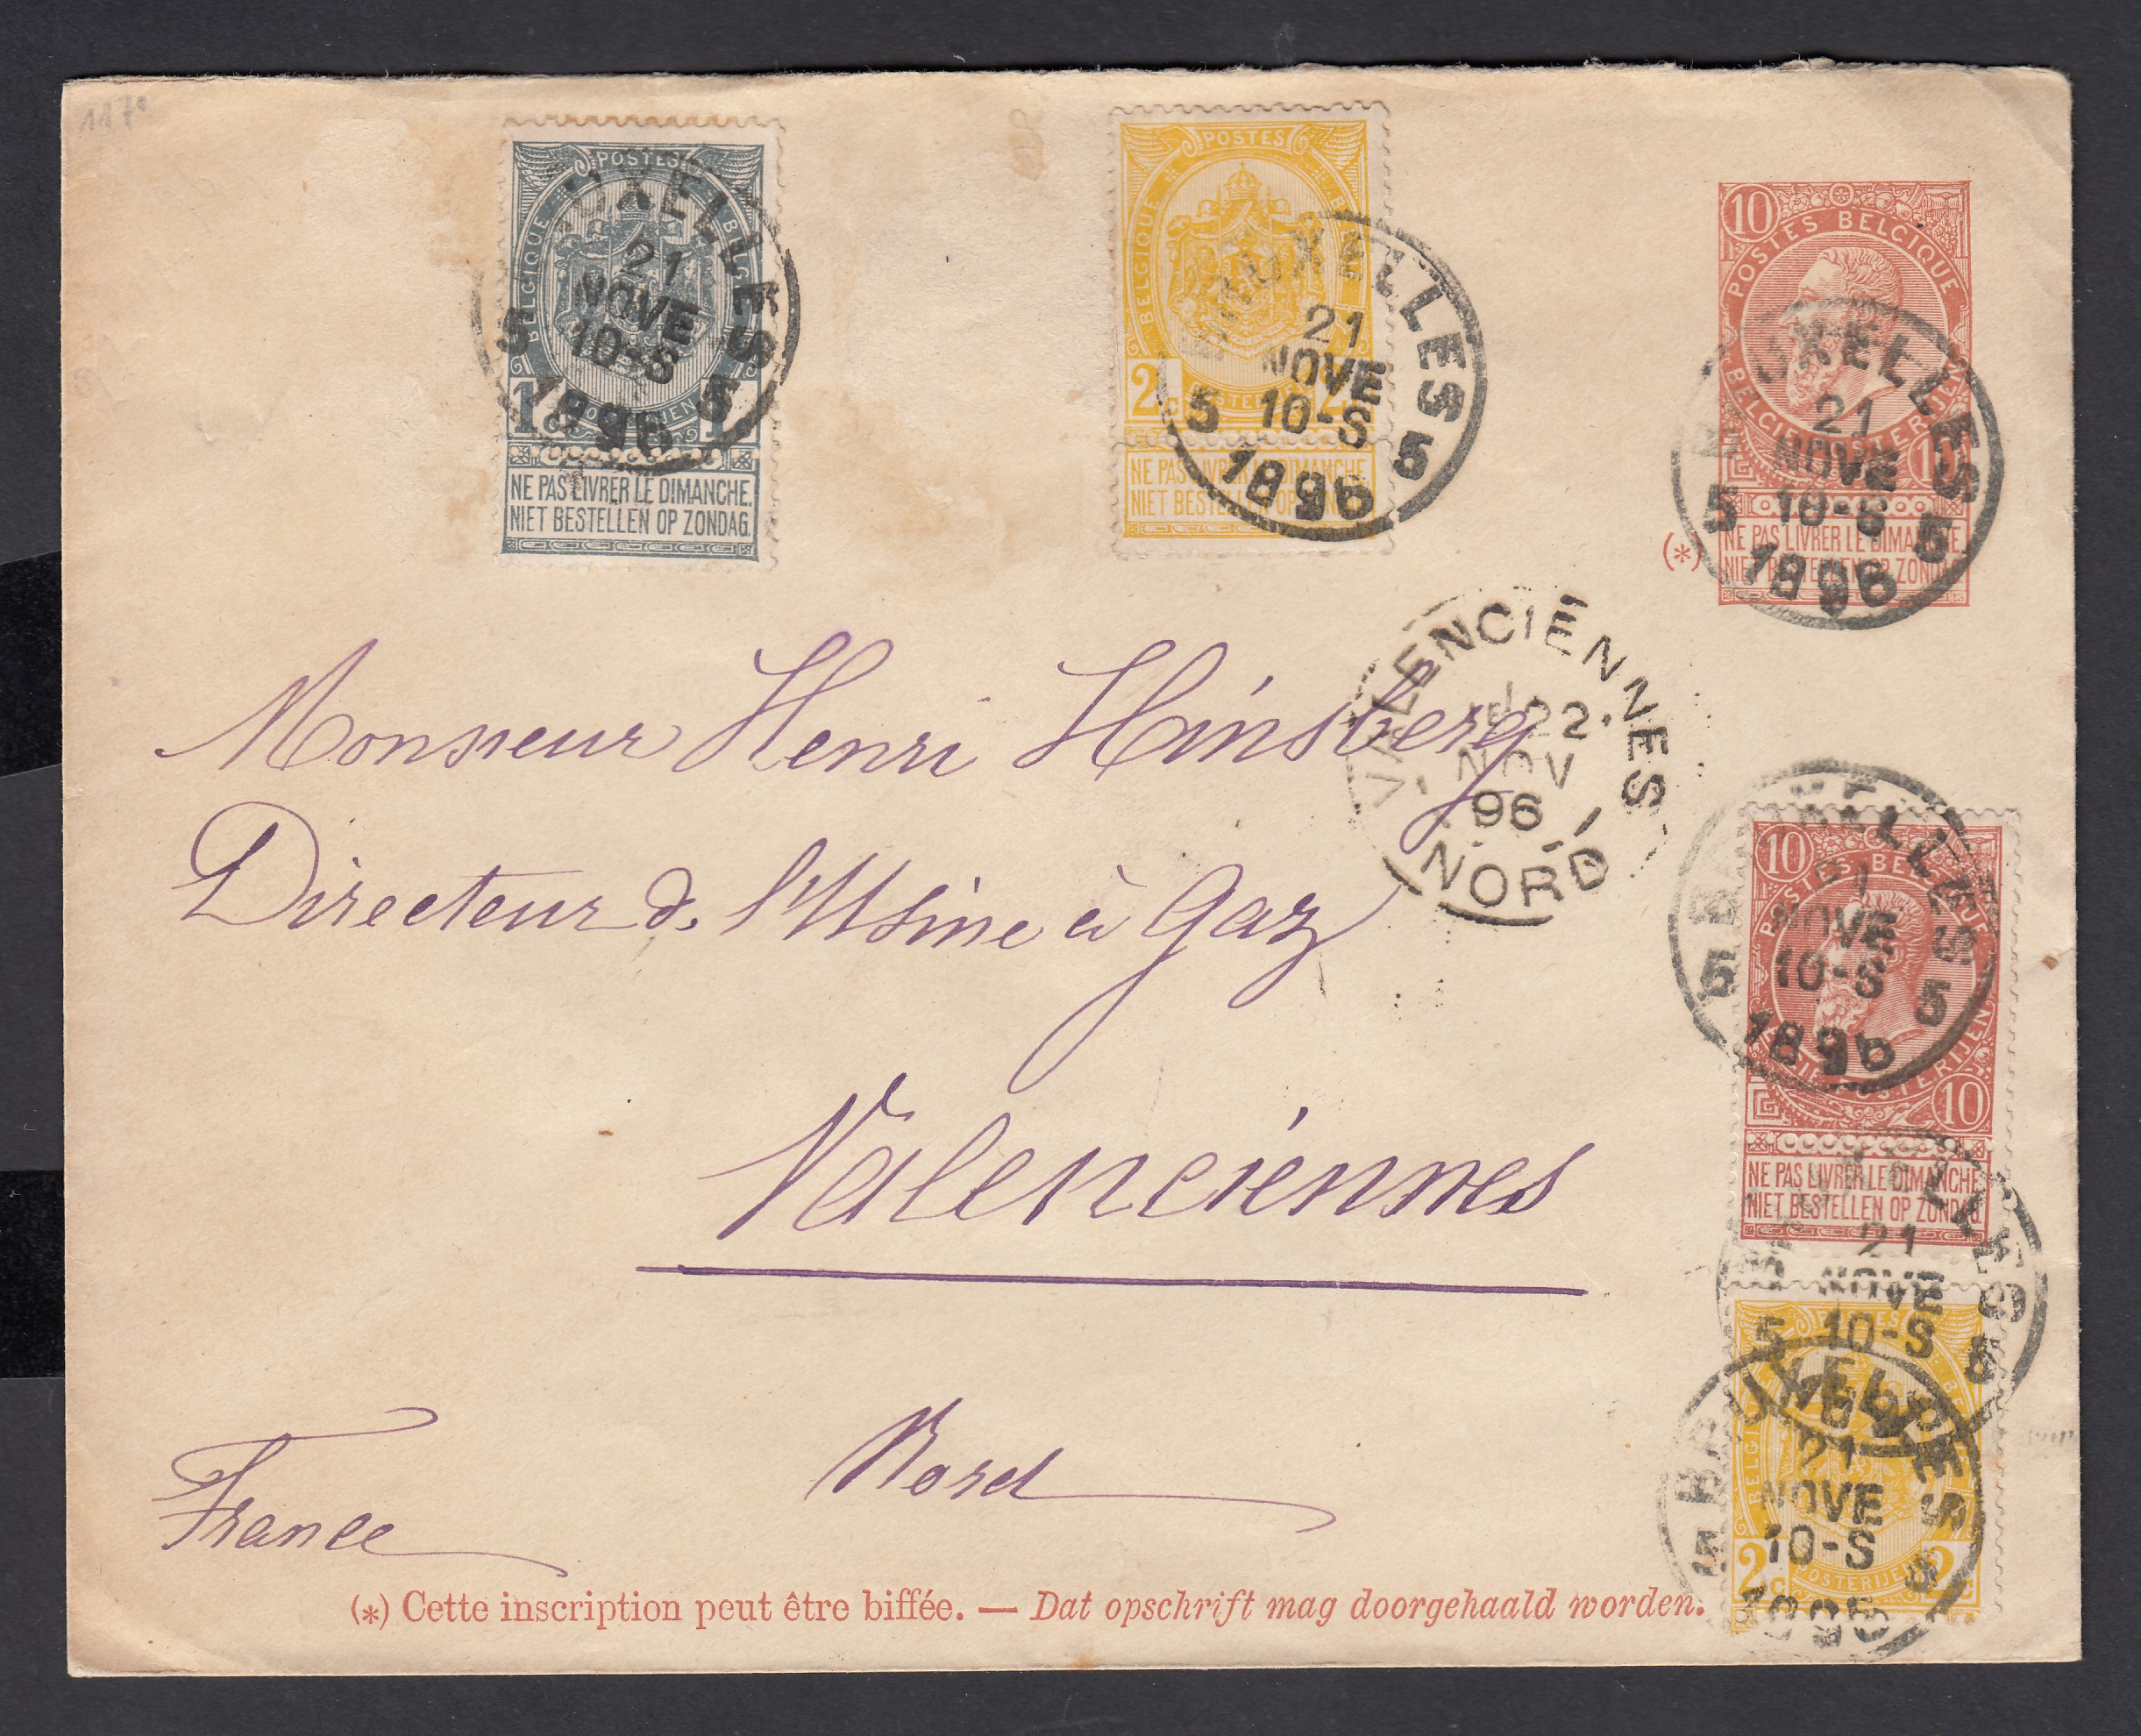 117º
POSTES
BELGIQUE
1c
NE PAS LIVRER LE DIMANCHE.
NIET BESTELLEN OP ZONDAG.
UXELLES
21
NOVE
10-S
5 5
1896
POSTES
BELGIQUE
2c
NE PAS LIVRER LE DIMANCHE.
NIET BESTELLEN OP
BRUXELLES
21
NOVE
5 10-S 5
1896
10
POSTES BELGIQUE
NE PAS LIVRER LE DIMANCHE.
NIET BESTELLEN OP ZONDAG.
UXELLES
21
NOVE
5 10-S 5
1896
(*)
VALENCIENNES
22
NOV
96
NORD
Monsieur Henri Hinsberg
Directeur de l'Usine à Gaz
Valenciennes
Nord
France
10
POSTES BELGIQUE
10
NE PAS LIVRER LE DIMANCHE.
NIET BESTELLEN OP ZONDAG.
XELLES
21
NOVE
5 10-S 5
1896
ELLES
21
NOVE
5 10-S 5
BELGIQUE
POSTERIJEN
2c 2c
BRUXELLES
21
NOVE
5 10-S 5
1896
(*) Cette inscription peut être biffée. — Dat opschrift mag doorgehaald worden.